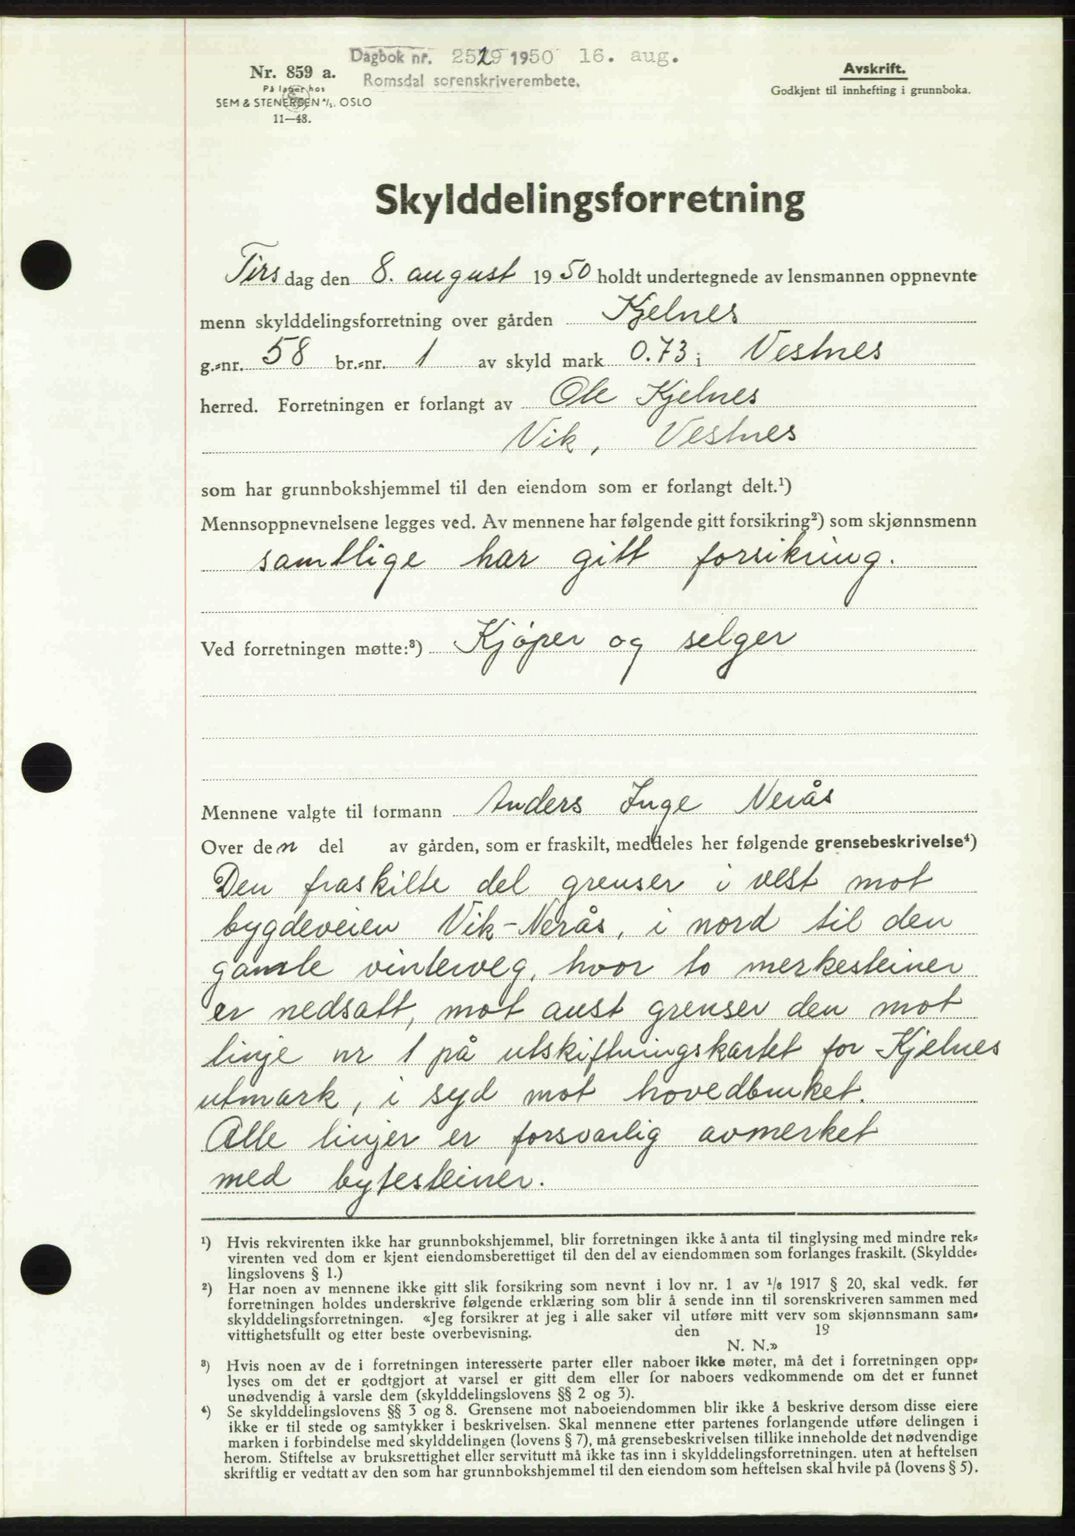 Dagbok nr. 2529 1950 16. aug.
Romsdal sorenskriverembete.
Nr. 859 a.
På lager hos
SEM & STENERSEN A/S. OSLO
11—48.
Avskrift.
Godkjent til innhefting i grunnboka.
Skylddelingsforretning
Tirsdag den 8. august 1950 holdt undertegnede av lensmannen oppnevnte
menn skylddelingsforretning over gården Kjelnes
g.-nr. 58 br.-nr. 1 av skyld mark 0.73 i Vestnes
herred. Forretningen er forlangt av Ole Kjelnes
Vik, Vestnes
som har grunnbokshjemmel til den eiendom som er forlangt delt.¹)
Mennsoppnevnelsene legges ved. Av mennene har følgende gitt forsikring²) som skjønnsmenn
samtlige har gitt forsikring.
Ved forretningen møtte:³) Kjøper og selger
Mennene valgte til formann Anders Inge Nerås
Over den del av gården, som er fraskilt, meddeles her følgende grensebeskrivelse⁴)
Den fraskilte del grenser i vest mot
bygdeveien Vik-Nerås, i nord til den
gamle vinterveg, hvor to merkesteiner
er nedsatt, mot aust grenser den mot
linje nr 1 på utskiftningskartet for Kjelnes
utmark, i syd mot hovedbruket.
Alle linjer er forsvarlig avmerket
med bytesteiner.
¹) Hvis rekvirenten ikke har grunnbokshjemmel, blir forretningen ikke å anta til tinglysing med mindre rek-
virenten ved dom er kjent eiendomsberettiget til den del av eiendommen som forlanges fraskilt. (Skyldde-
lingslovens § 1.)
²) Har noen av mennene ikke gitt slik forsikring som nevnt i lov nr. 1 av 1/6 1917 § 20, skal vedk. før
forretningen holdes underskrive følgende erklæring som blir å sende inn til sorenskriveren sammen med
skylddelingsforretningen. «Jeg forsikrer at jeg i alle saker vil utføre mitt verv som skjønnsmann sam-
vittighetsfullt og etter beste overbevisning. den 19
N. N.»
³) Hvis noen av de i forretningen interesserte parter eller naboer ikke møter, må det i forretningen opp-
lyses om det er godtgjort at varsel er gitt dem eller for naboers vedkommende om det er funnet
unødvendig å varsle dem (skylddelingslovens §§ 2 og 3).
⁴) Se skylddelingslovens §§ 3 og 8. Grensene mot naboeiendommen blir ikke å beskrive dersom disse eiere
ikke er til stede og samtykker i beskrivelsen. Skal mennene etter partenes forlangende utføre delingen i
marken i forbindelse med skylddelingen (lovens § 7), må grensebeskrivelsen tillike inneholde det nødvendige
herom. Stiftelse av bruksrettighet eller servitutt må ikke tas inn i skylddelingsforretningen. uten at heftelsen
skriftlig er vedtatt av den som har grunnbokshjemmel til den eiendom som heftelsen skal hvile på (lovens § 5).